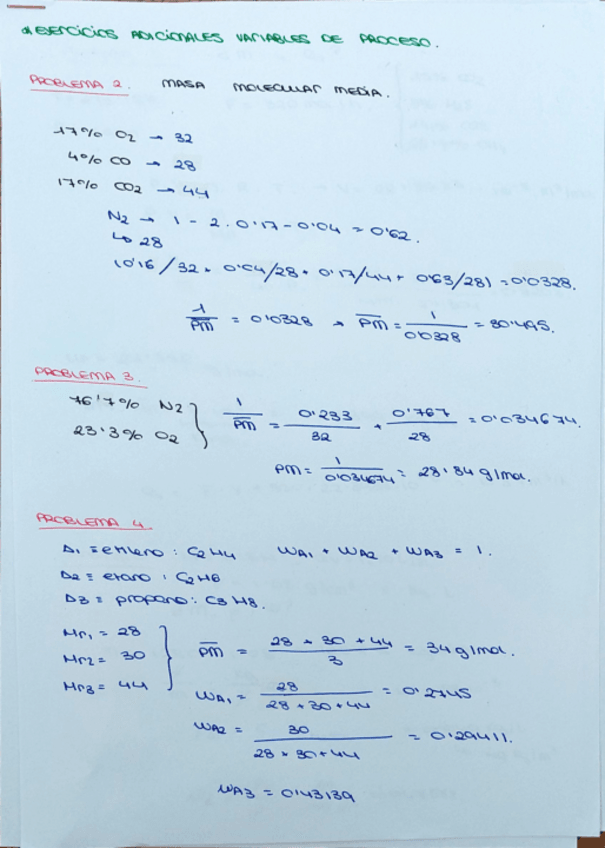 EJERCICIOS ADICIONALES VARIABLES DE PROCESO.
PROBLEMA 2. MASA MOLECULAR MEDIA.
17% O2 → 32
4% CO → 28
17% CO2 → 44
N2 → 1 - 2·0'17 - 0'04 = 0'62.
↳ 28
(0'16/32 + 0'04/28 + 0'17/44 + 0'63/28) = 0'0328.
1/PM = 0'0328 → PM = 1/0'0328 = 30'495.
PROBLEMA 3.
76'7% N2
23'3% O2
1/PM = 0'233/32 + 0'767/28 = 0'034674.
PM = 1/0'034674 = 28'84 g/mol.
PROBLEMA 4.
A1 ≡ etileno: C2H4 WA1 + WA2 + WA3 = 1.
A2 ≡ etano: C2H6
A3 ≡ propano: C3H8.
Mr1 = 28
Mr2 = 30
Mr3 = 44
PM = 28 + 30 + 44 / 3 = 34 g/mol.
WA1 = 28 / 28 + 30 + 44 = 0'2745
WA2 = 30 / 28 + 30 + 44 = 0'29411.
WA3 = 0'43139